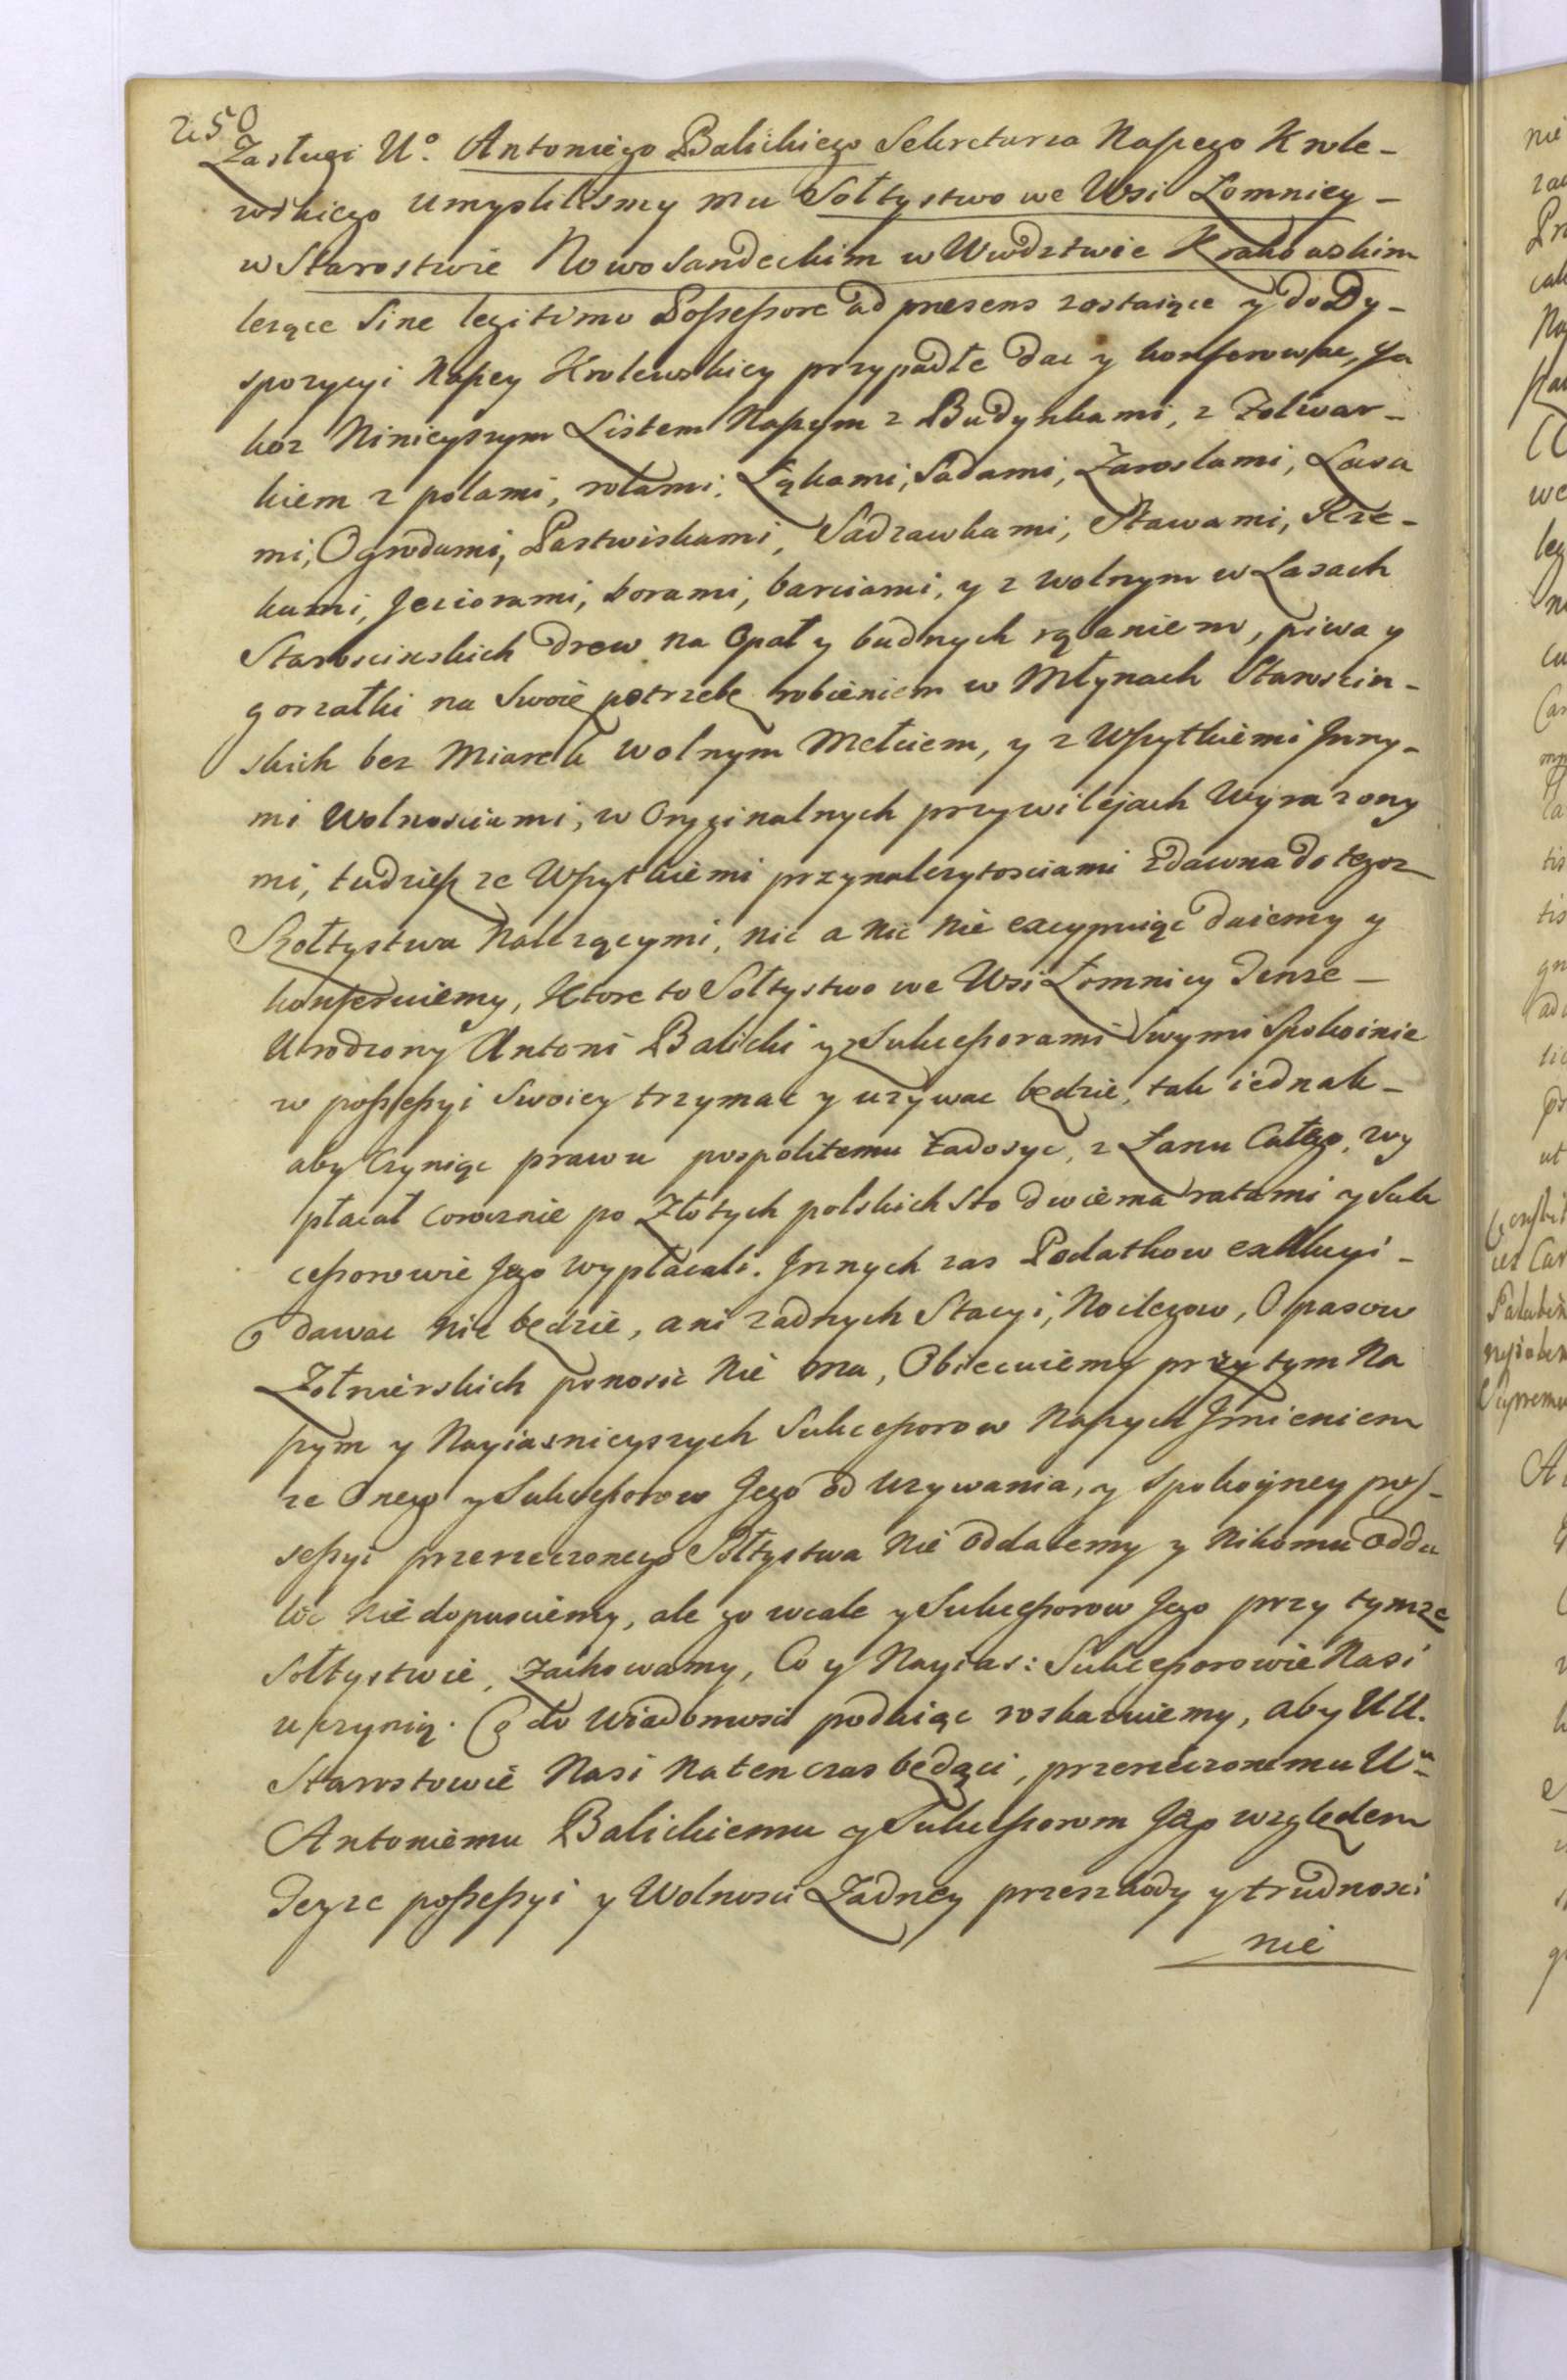 250
Zasługi U.º Antoniego Balickiego Sekretarza Naszego Krole-
wskiego umyslilismy mu Sołtystwo we Wsi Łomnicy -
w Starostwie Nowo Sandeckim w Wwdztwie Krakowskim
lezące Sine legitimo Possessore ad praesens zostaiące y do Dy-
spozycyi Naszey Krolewskiey przypadłe dac y konferowac, Ja
koz Ninieyszym Listem Naszym z Budynkami, z Folwar-
kiem z polami, rolami, Łąkami, Sadami, Zaroslami, Lasa
mi, Ogrodami, Pastwiskami, Sadzawkami, Stawami, Rze-
kami, Jeziorami, borami, barciami, y z wolnym w Lasach
Staroscinskich drew na Opał y budnych rąbaniem, piwa y
gorzałki na Swoię potrzebę robieniem w Młynach Staroscin-
skich bez Miarek wolnym Mełciem, y z Wszytkiemi Inny-
mi Wolnosciami, w Oryginalnych przywilejach Wyrazony
mi, tudziesz ze Wszytkiemi przynalezytosciami zdawna do tegoz
Szołtystwa Nalezącymi, nic a nic nie excypuiąc daiemy y
konferuiemy, Ktore to Sołtystwo we Wsi Łomnicy Tenze -
Urodzony Antoni Balicki y z Sukcessorami Swymi Spokoinie
w possessyi Swoiey trzymac y uzywac będzie, tak iednak -
aby Czyniąc prawu pospolitemu Zadosyc, z Łanu Całego, wy
płacał corocznie po Złotych polskich Sto dwiema ratami y Suk
cessorowie Jego wypłacali. Innych zas Podatkow
dawac nie będzie, ani zadnych Stacyi, Noclegow, Opasow
Zołnierskich ponosic Nie ma, Obiecuiemy przy tym Na
szym y Nayiasnieyszych Sukcessorow Naszych Imieniem
ze Onego y Sukcessorow Jego od Uzywania, y Spokoyney pos-
sessyi przerzeczonego Sołtystwa Nie oddalemy y Nikomu Odda
lic Nie dopusciemy, ale go wcale y Sukcessorow Jego przy tymze
Sołtystwie, Zachowamy, Co y Nayias: Sukcessorowie Nasi
uczynią. Co do Wiadomosci podaiąc roskazuiemy, aby UU.
Starostowie Nasi Na ten czas będąci, przerzeczonemu U.
Antoniemu Balickiemu y Sukcessorom Jego względem
Teyze possessyi y Wolnosci Zadney przeszkody y trudnosci
nie